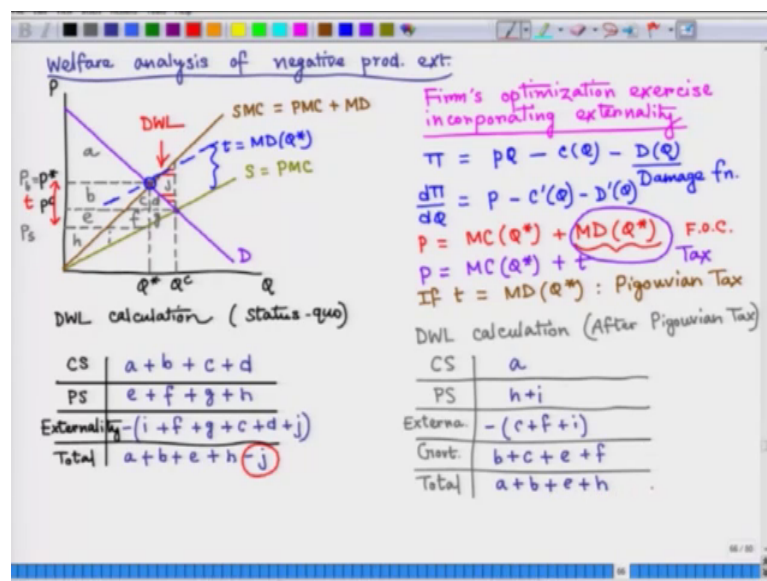 Welfare analysis of negative prod. ext.
P
SMC = PMC + MD
DWL
t = MD(Q*)
S = PMC
a
b
c
d
j
e
f
g
h
i
P_b = P*
t
P^c
P_s
D
Q*
Q^c
Q
DWL calculation (status-quo)
CS | a + b + c + d
PS | e + f + g + h
Externality | -(i + f + g + c + d + j)
Total | a + b + e + h - j
Firm's optimization exercise
incorporating externality
π = pQ - c(Q) - D(Q)
Damage fn.
dπ/dQ = P - c'(Q) - D'(Q)
P = MC(Q*) + MD(Q*) F.O.C.
P = MC(Q*) + t Tax
If t = MD(Q*) : Pigouvian Tax
DWL calculation (After Pigouvian Tax)
CS | a
PS | h+i
Externa. | -(c+f+i)
Govt. | b+c+e+f
Total | a+b+e+h
66